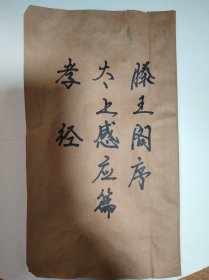 滕王阁序
太上感应篇
孝经